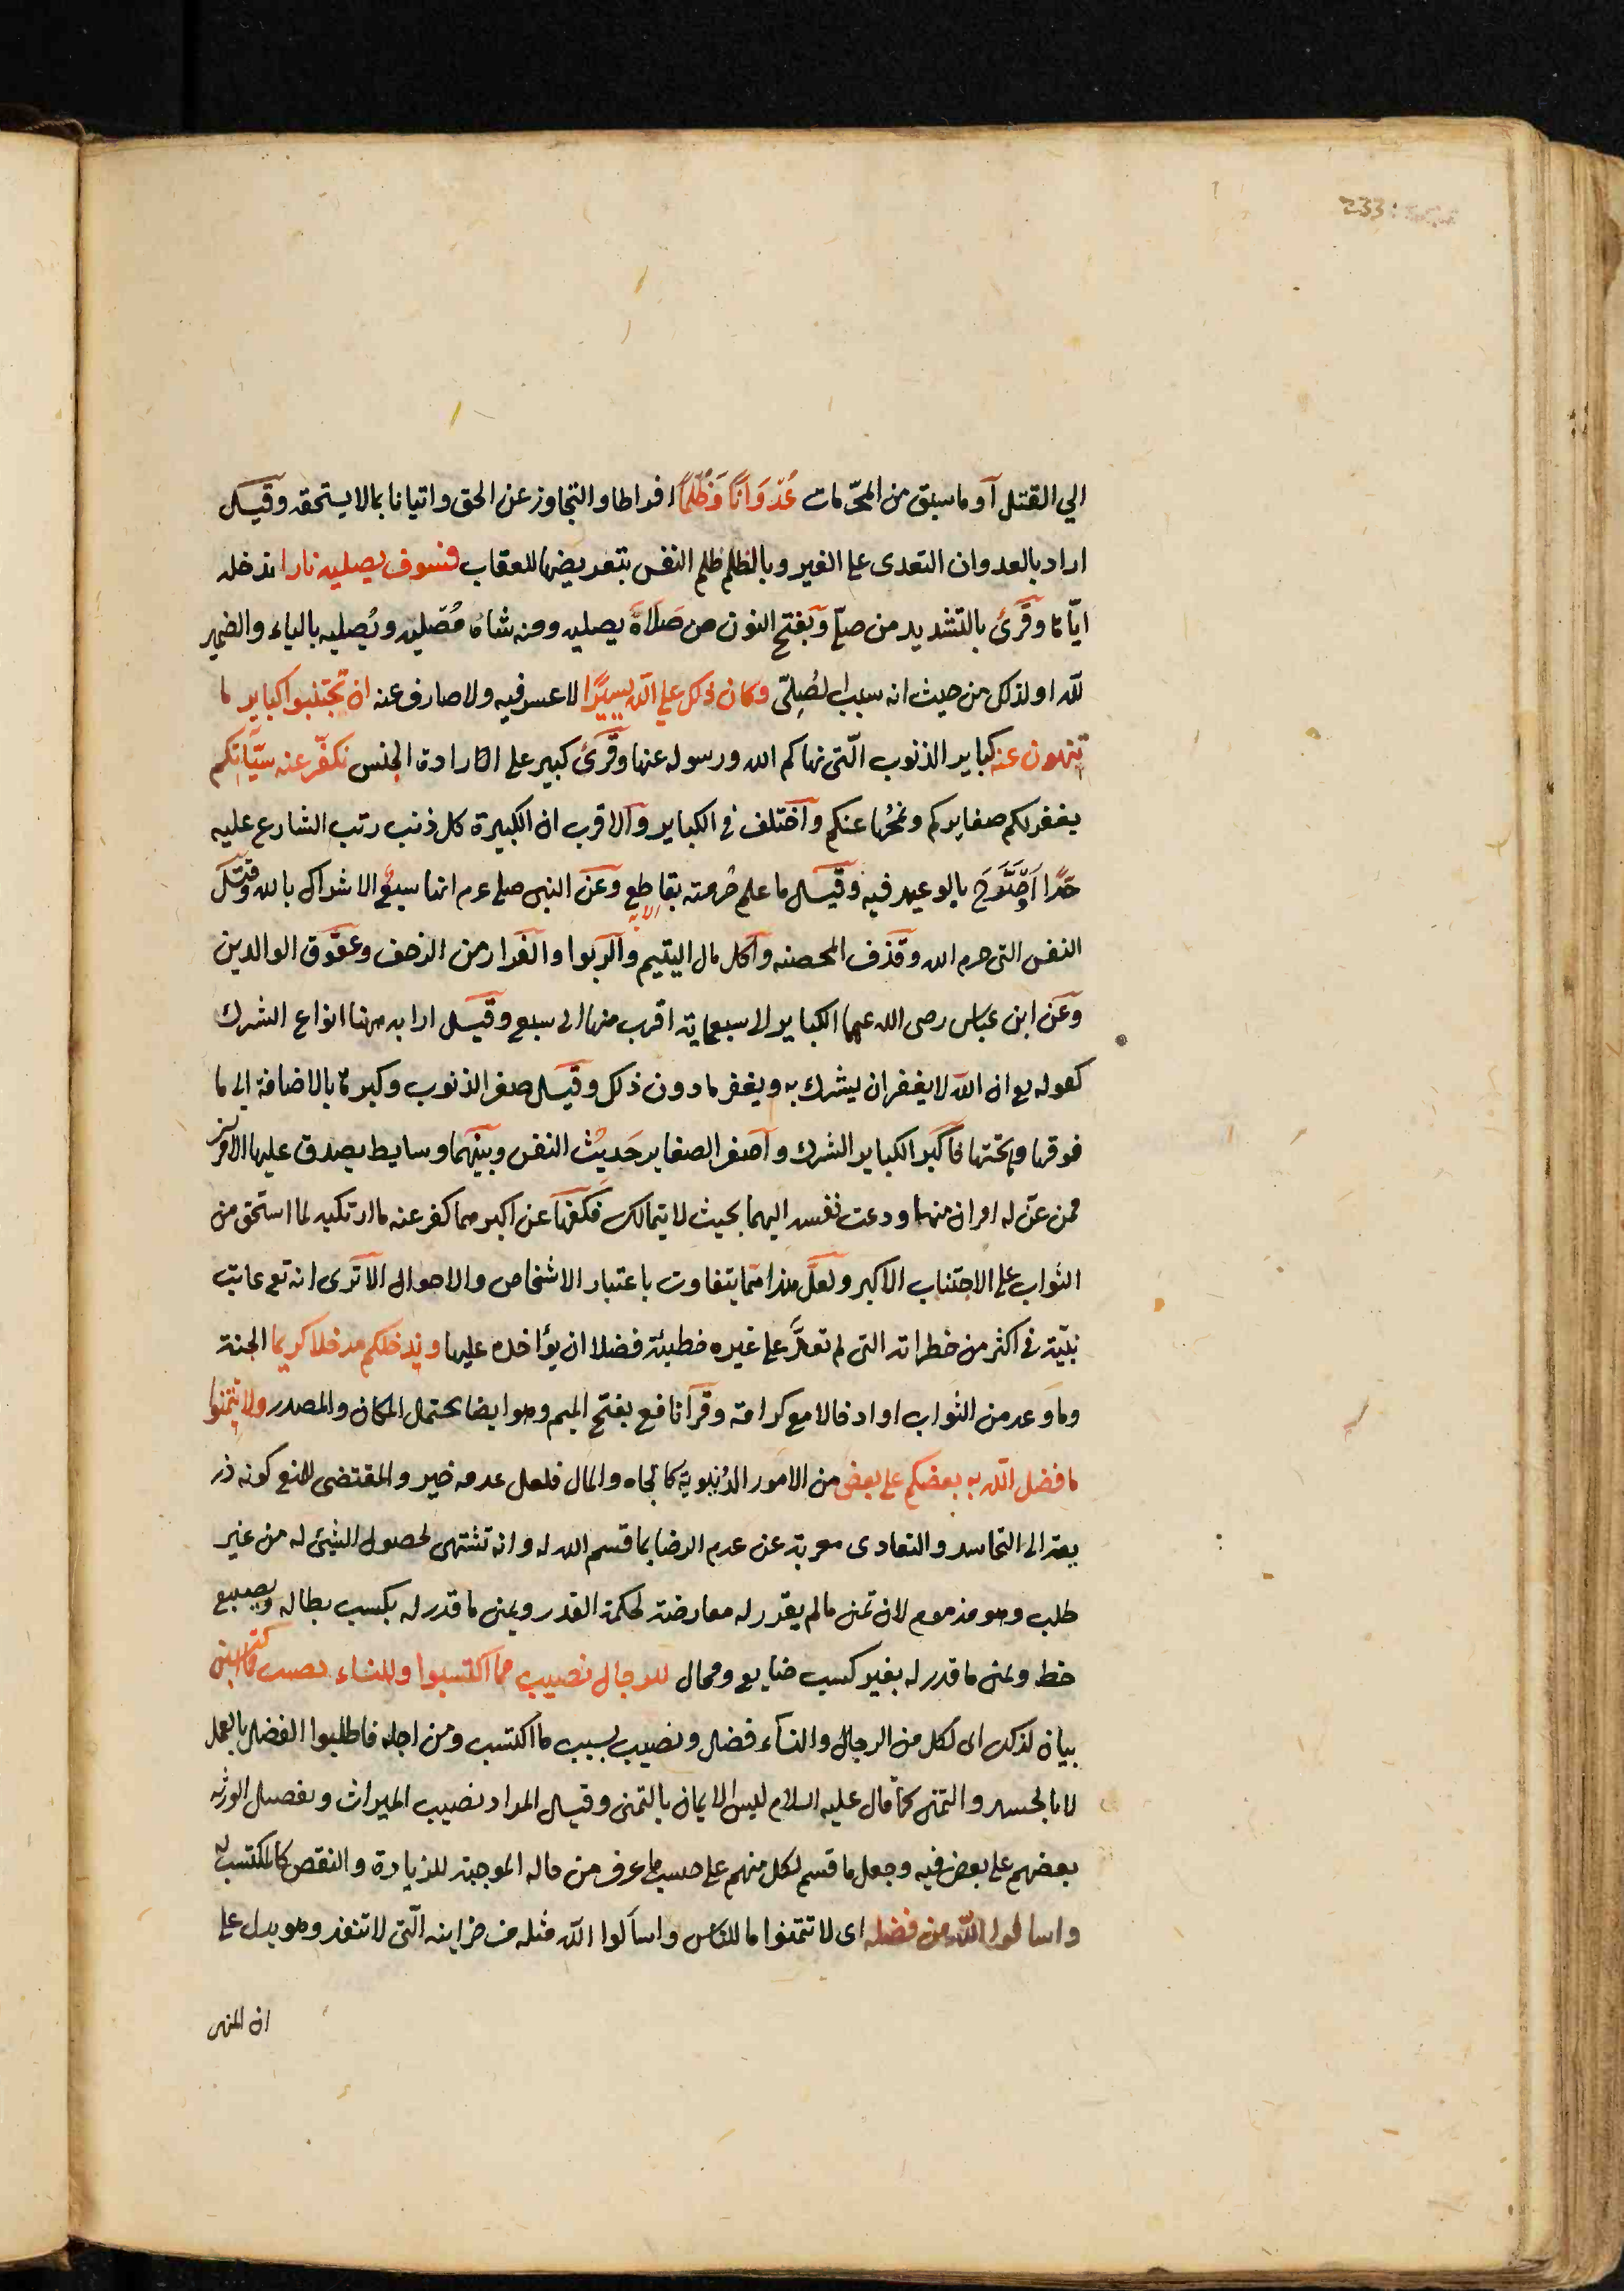 233
الي القتل أو ما سبق من المحرّمات عُدْوَانًا وَظُلْمًا افراطا والتجاوز عن الحق واتيانا بما لا يستحقه وقيل
اراد بالعدوان التعدى على الغير وبالظلم ظلم النفس بتعريضها للعقاب فسوف يصليه نارا ندخله
ايّاها وقرئ بالتشديد من صلّى وبفتح النون من صَلَاهُ يصليه ومنه شاة مُصْليه ويُصليه بالياء والضمير
لله او لذلك من حيث انه سبب لصُلِىّ وكان ذلك على الله يسيرًا لا عسر فيه ولا صارف عنه ان تجتنبوا كباير ما
تنهون عنه كباير الذنوب الّتى نهاكم الله ورسوله عنها وقرئ كبير على ارادة الجنس نكفّر عنه سيّآتكم
يغفر لكم صغايركم ونمحُها عنكم وأختلف فى الكباير والاقرب ان الكبيرة كل ذنب رتب الشارع عليه
حَدًا بالوعيد فيه وقيل ما علم حُرمته بقاطع وعن النبى صلعم انها سبعٌ الاشراك بالله وقتل
النفس التى حرم الله وقذف المحصنه وأكل مال اليتيم والربوا والفرار من الزحف وعقوق الوالدين
وعن ابن عباس رضى الله عنهما الكباير الى سبعماية اقرب منها الى سبع وقيل اراد به ههنا انواع الشرك
كقوله تع ان الله لا يغفر ان يشرك به ويغفر ما دون ذلك وقيل صغر الذنوب وكبرها بالاضافة الى ما
فوقها وما تحتها فأكبر الكباير الشرك وأصغر الصغاير حَديث النفس وبينهما وسايط يصدق عليها الأمران
فمن عنّ له امران منهما ودعت نفسه اليهما بحيث لا يتمالك فكفّها عن اكبرهما كفر عنه ما ارتكبه لما استحق من
الثواب على الاجتناب الاكبر ولعلّ هذا ممّا يتفاوت باعتبار الاشخاص والاحوال الا ترى انه تع عاتب
نبيّه فى اكثر من خطراته التى لم تعدّ على غيره خطيئة فضلا ان يؤاخذه عليها وندخلكم مدخلا كريما الجنة
وما وعد من الثواب او ادخالا مع كرامة وقرأ نافع بفتح الميم وهو ايضا يحتمل المكان والمصدر ولا تتمنوا
ما فضل الله به بعضكم على بعض من الامور الدنيوية كالجاه والمال فلعل عدمه خير والمقتضى للمنع كونه ذر
يعة الى التحاسد والتعادى معربة عن عدم الرضا بما قسم الله له وانه تشتهى لحصول الشئ له من غير
طلب وهو مذموم لان تمنى ما لم يقدر له معارضة لحكمة القدر وتمنى ما قدر له بكسب بطاله وتضييع
حظ وتمنى ما قدر له بغير كسب ضايع ومحال للرجال نصيب مما اكتسبوا وللنساء نصيب مما اكتسبن
بيان لذلك اى لكل من الرجال والنسآء فضل ونصيب بسبب ما اكتسب ومن اجله فاطلبوا الفضل بالعمل
لا بالحسد والتمنى كما قال عليه السلام ليس الايمان بالتمنى وقيل المراد نصيب الميراث وتفضيل الورثه
بعضهم على بعض فيه وجعل ما قسم لكل منهم على حسب ما عرف من حاله الموجبة للزيادة والنقص كالمكتسب له
واسالوا الله من فضله اى لا تتمنوا ما للناس واسألوا الله مثله من خزاينه الّتى لا تنفذ وهو يدل على
ان المنهى